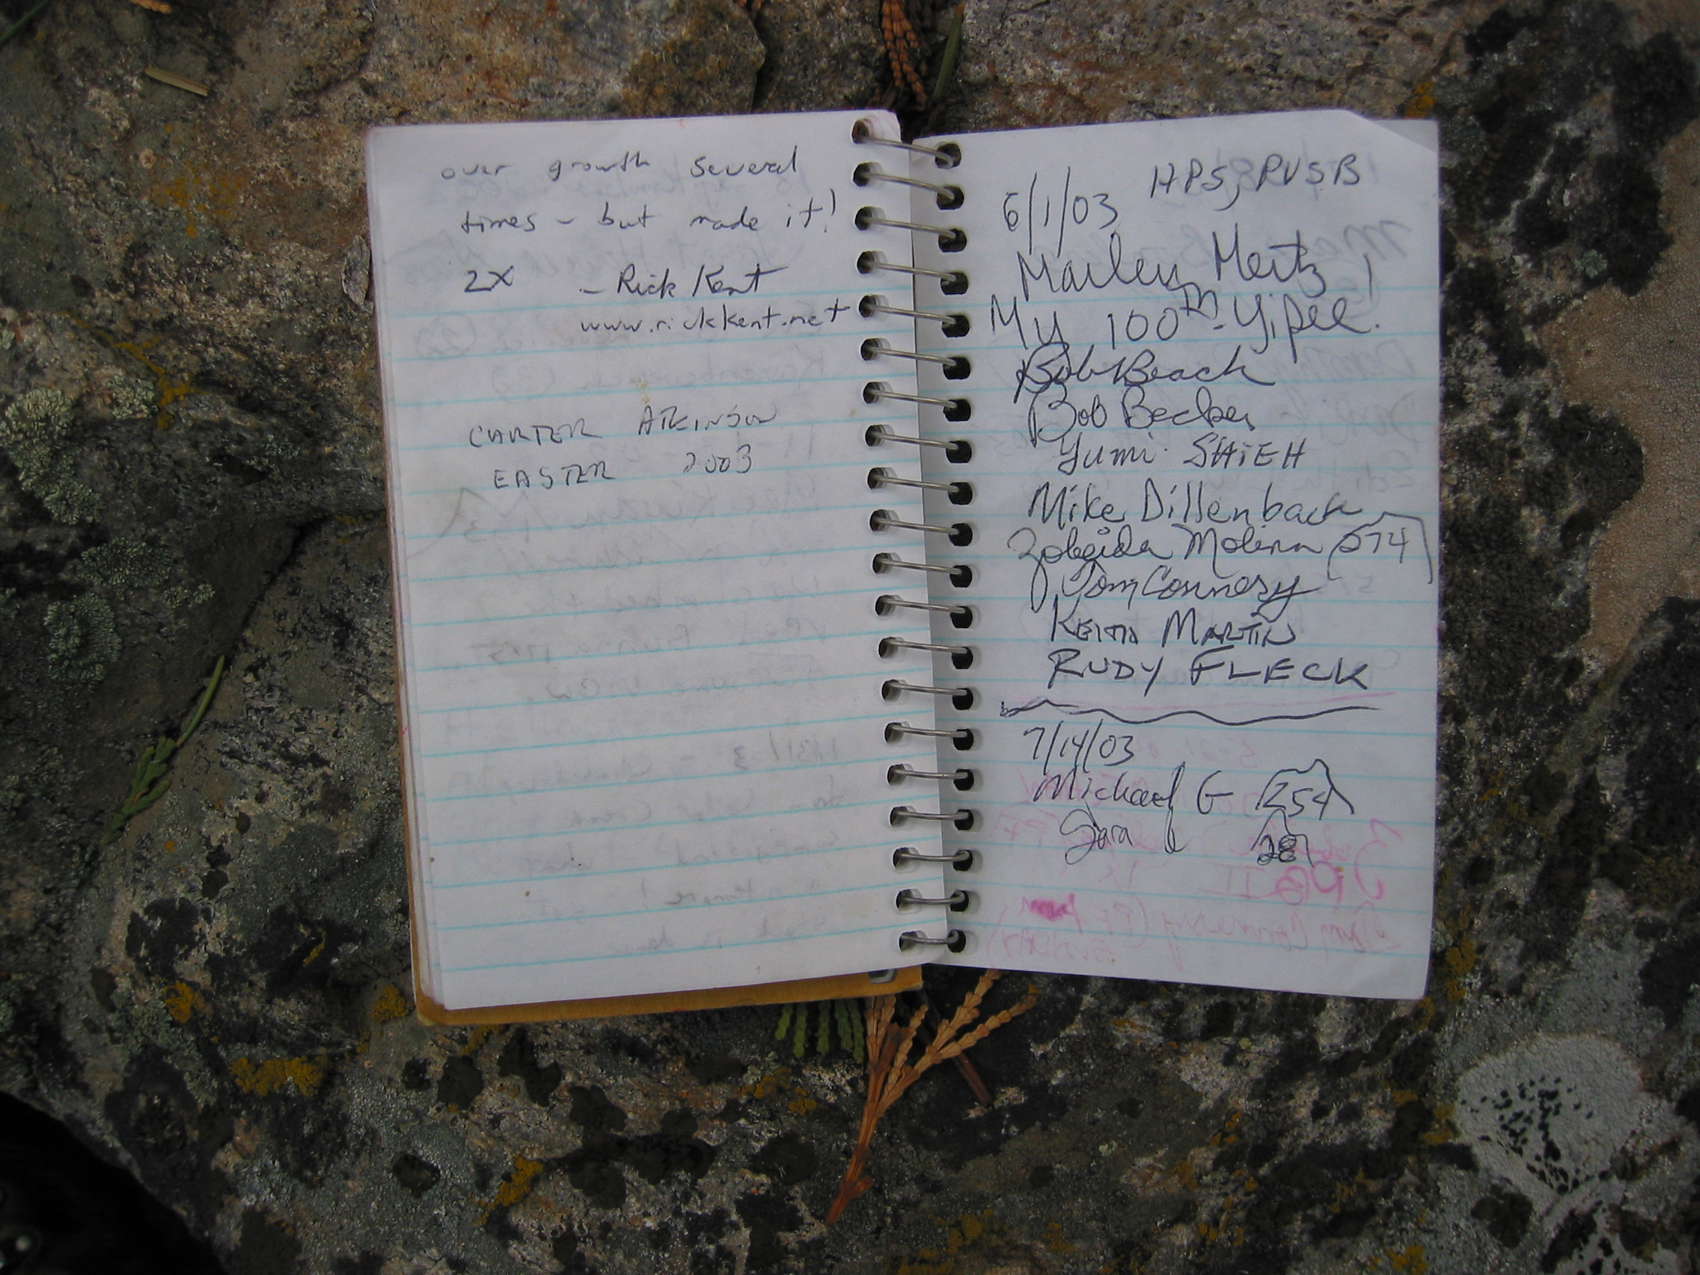 over growth several
times – but made it!
2X – Rick Kent
www.rickkent.net
CARTER ATKINSON
EASTER 2003
HPS, PVSB
6/1/03
Marlen Mertz
My 100th. Yipee!
Bob Beach
Bob Becker
Yumi SHIEH
Mike Dillenback
Zobeida Molina (274)
Tom Connery
KEITH MARTIN
RUDY FLECK
7/14/03
Michael G 254
Sara 28